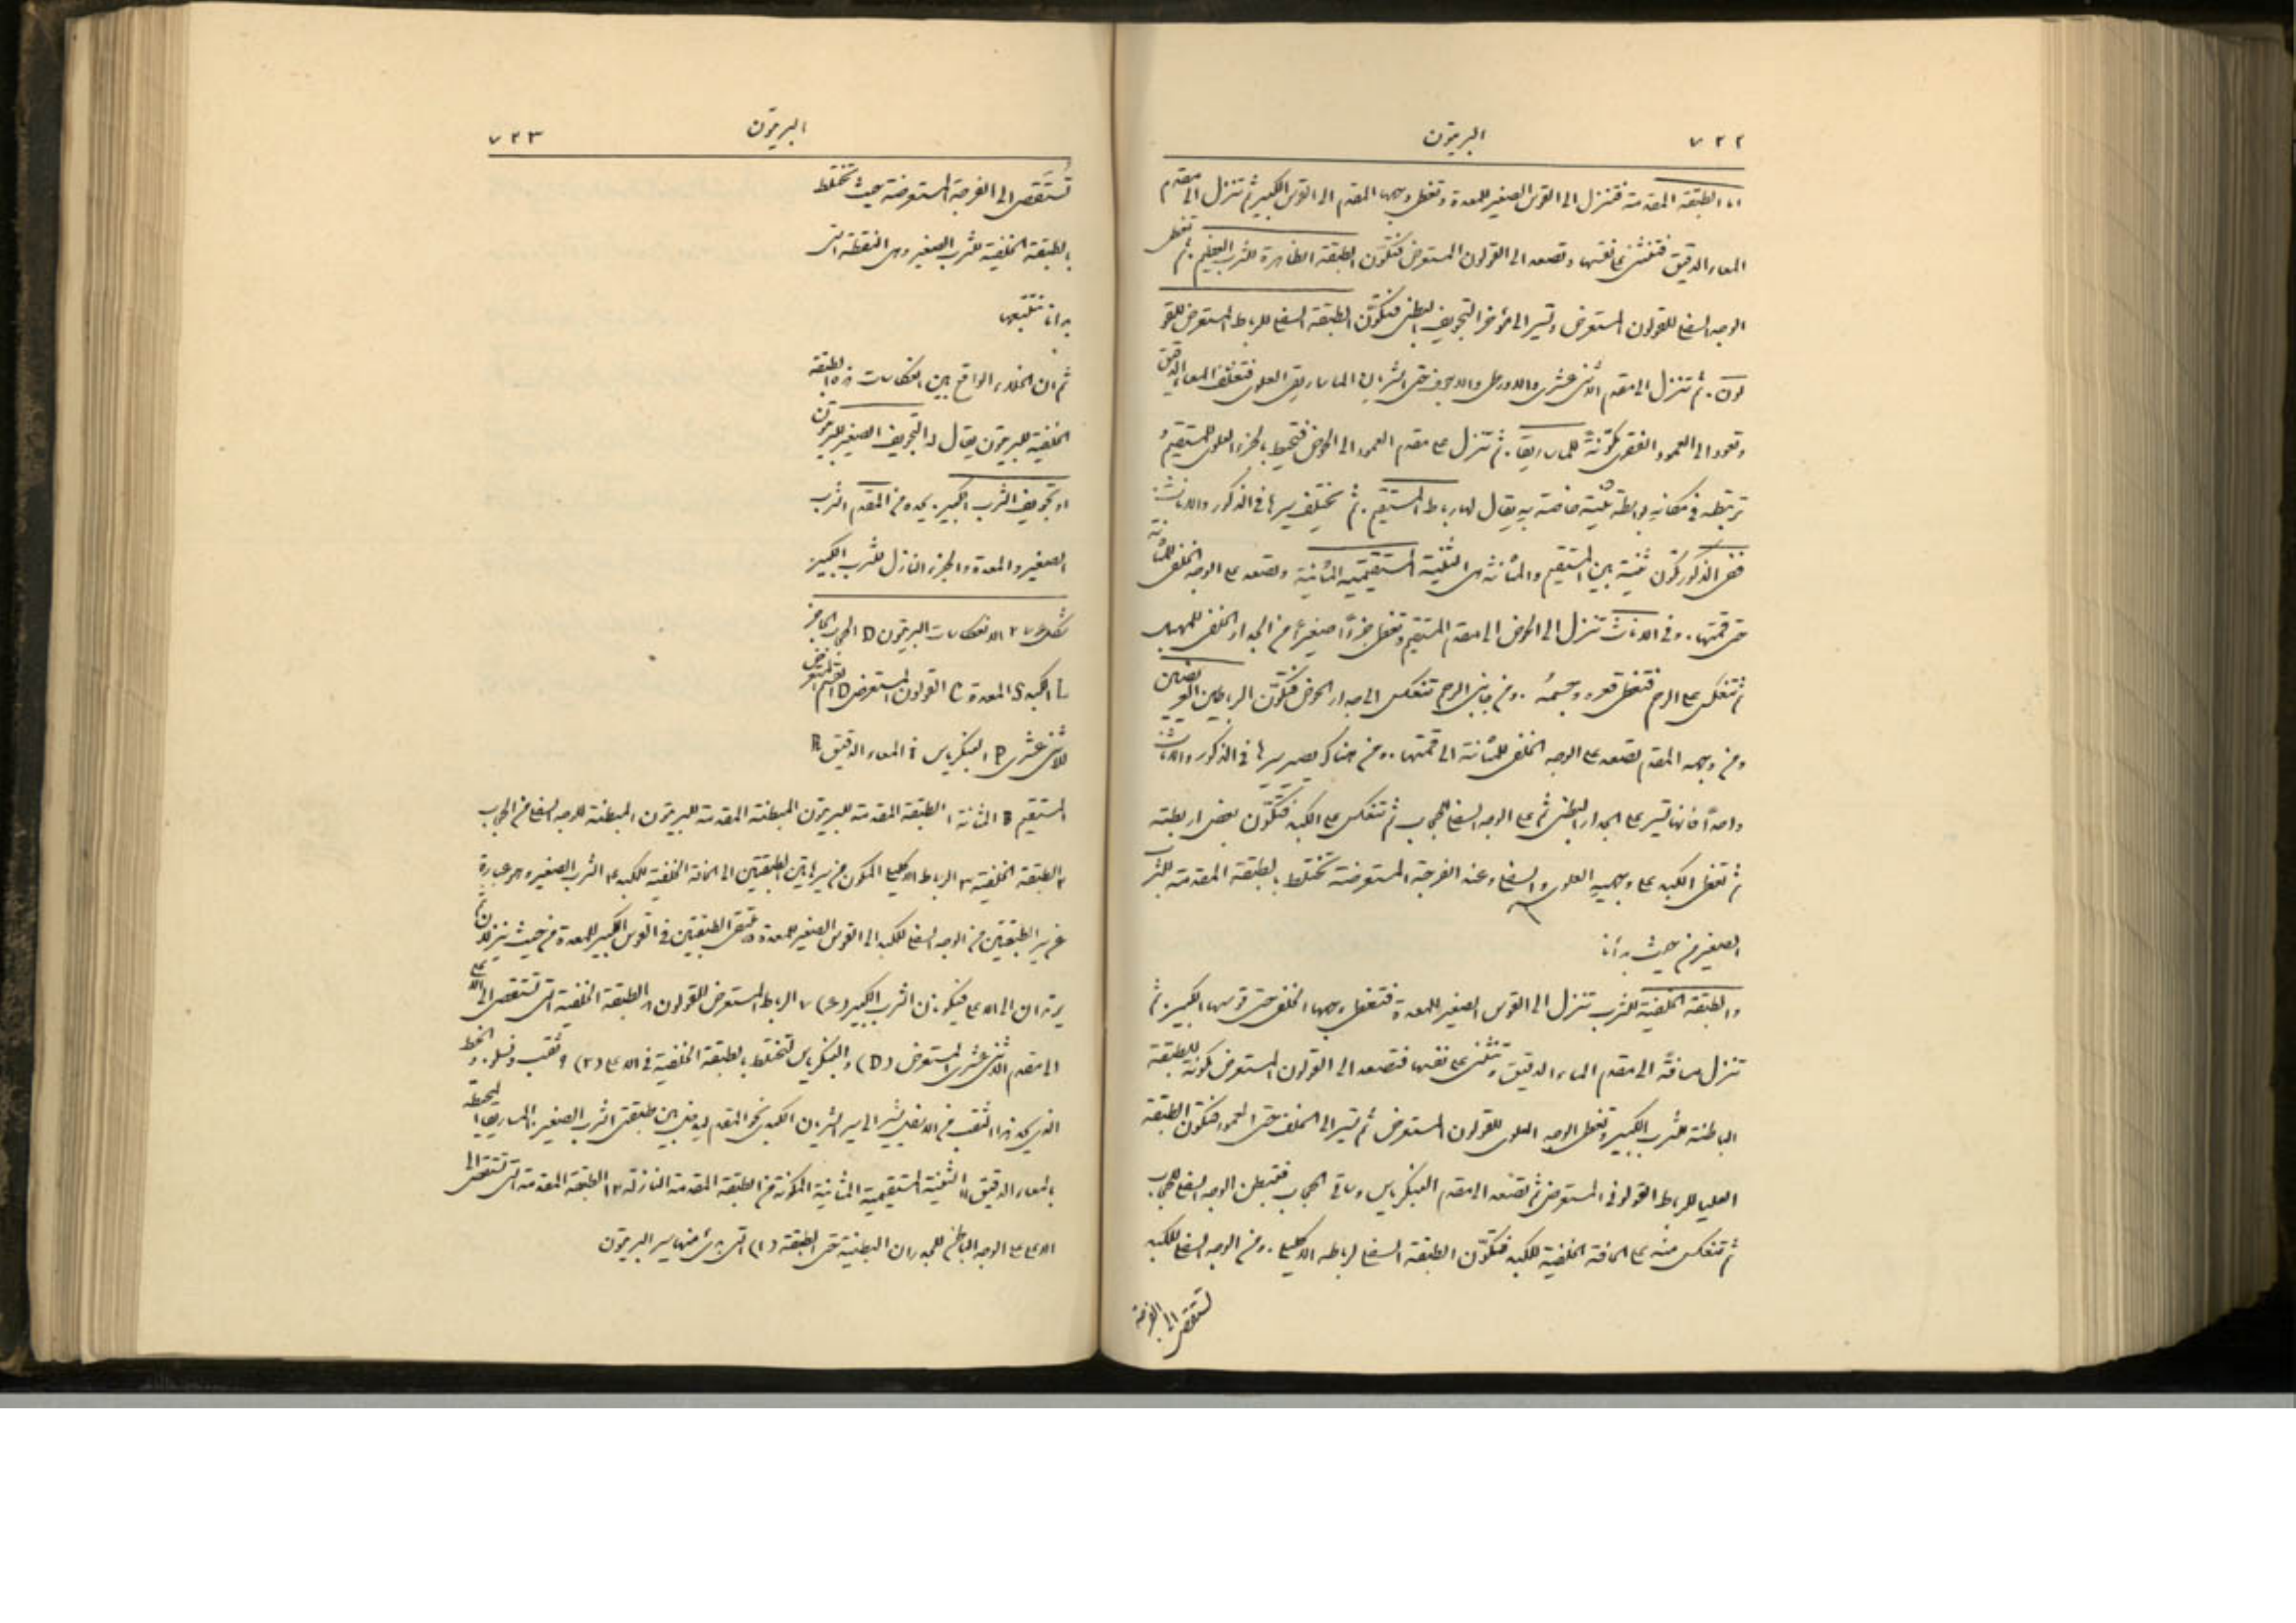 ٧٢٢ البريتون
اما الطبقة المقدمة فتنزل الى القوس الصغير للمعدة وتغطي وجهها المقدم الى القوس الكبير ثم تنزل الى مقدم
المعاء الدقيق فتنثني على نفسها وتصعد الى القولون المستعرض فتكوّن الطبقة الظاهرة للثرب العظيم. ثم تغطي
الوجه السفلي للقولون المستعرض وتسير الى مؤخر التجويف البطني فتكوّن الطبقة السفلى للرباط المستعرض للقو
لون. ثم تنزل الى مقدم الاثني عشري والاورطى والاجوف حتى الشريان الماساريقي العلوي فتغلف المعاء الدقيق
وتعود الى العمود الفقري مكوّنة للماساريقا. ثم تنزل على مقدم العمود الى الحوض فتحيط بالجزء العلوي للمستقيم و
تربطه في مكانه بواسطة ثنية خاصة به يقال لها رباط المستقيم. ثم يختلف سيرها في الذكور والاناث
ففي الذكور تكوّن ثنية بين المستقيم والمثانة هي الثنية المستقيمية المثانية وتصعد على الوجه الخلفي للمثانة
حتى قمتها. وفي الاناث تنزل الى الحوض الى مقدم المستقيم وتغطي جزءًا صغيرًا من الجدار الخلفي للمهبل
ثم تنعكس على الرحم فتغطي قعره وجسمه. ومن جانبي الرحم تنعكس الى جدار الحوض فتكوّن الرباطين العريضين
ومن وجهه المقدم تصعد على الوجه الخلفي للمثانة الى قمتها. ومن هناك يصير سيرها في الذكور والاناث
واحدًا فانها تسير على الجدار البطني ثم على الوجه السفلي للحجاب ثم تنعكس على الكبد فتكوّن بعض اربطته
ثم تغطي الكبد على وجهيه العلوي والسفلي وعند الفرجة المستعرضة تختلط بالطبقة المقدمة للثرب
الصغير من حيث بدأنا
والطبقة الخلفية للثرب تنزل الى القوس الصغير للمعدة فتغطي وجهها الخلفي حتى قوسها الكبير. ثم
تنزل مسافة الى مقدم المعاء الدقيق وتنثني على نفسها فتصعد الى القولون المستعرض مكونة للطبقة
الباطنة للثرب الكبير وتغطي الوجه العلوي للقولون المستعرض ثم تسير الى الخلف حتى العمود فتكوّن الطبقة
العليا للرباط القولوني المستعرض ثم تصعد الى مقدم البنكرياس وساقي الحجاب فتبطن الوجه السفلي للحجاب
ثم تنعكس منه على الحافة الخلفية للكبد فتكوّن الطبقة السفلى لرباطه الاكليلي. ومن الوجه السفلي للكبد
تستقصى الى الفرجة
البريتون ٧٢٣
تُستَقصى الى الفرجة المستعرضة حيث تختلط
بالطبقة الخلفية للثرب الصغير وهي النقطة التي
بدانا بتتبعها
ثم ان الخلاء الواقع بين انعكاسات هذه الطبقة
الخلفية للبريتون يقال له التجويف الصغير للبريتون
او تجويف الثرب الكبير. يحده من المقدم الثرب
الصغير والمعدة والجزء النازل للثرب الكبير
شكل ٢٧٤ الانعكاسات البريتون D الحجاب الحاجز
L الكبد S المعدة C القولون المستعرض D القسم المستعرض
للاثني عشري P البنكرياس i المعاء الدقيق R
المستقيم B المثانة ١ الطبقة المقدمة للبريتون المبطنة المقدمة للبريتون المبطنة للوجه السفلي من الحجاب
٢ الطبقة الخلفية ٣ الرباط الاكليلي المكون من سير هاتين الطبقتين الى الحافة الخلفية للكبد ٤ الثرب الصغير وهو عبارة
عن سير الطبقتين من الوجه السفلي للكبد الى القوس الصغير للمعدة ٥ ملتقى الطبقتين في القوس الكبير للمعدة من حيث ينزلان ثم
يرتدان الى الاعلى فيكونان الثرب الكبير (٦) ٧ الرباط المستعرض للقولون ٨ الطبقة الخلفية التي تستقصى الى الاعلى
الى مقدم الاثني عشري المستعرض (D) والبنكرياس لتختلط بالطبقة الخلفية في الاعلى (٢) ٩ ثقب ونسلو. والخط
الذي يحد هذا الثقب من الاسفل يشير الى سير الشريان الكبدي نحو المقدم ليدخل بين طبقتي الثرب الصغير. ١٠ الماساريقا المحيطة
بالمعاء الدقيق ١١ الثنية المستقيمية المثانية المكونة من الطبقة المقدمة النازلة ١٢ الطبقة المقدمة التي تستقصى الى
الاعلى على الوجه الباطن للجدران البطنية حتى الطبقة (١) التي بدئ منها سير البريتون